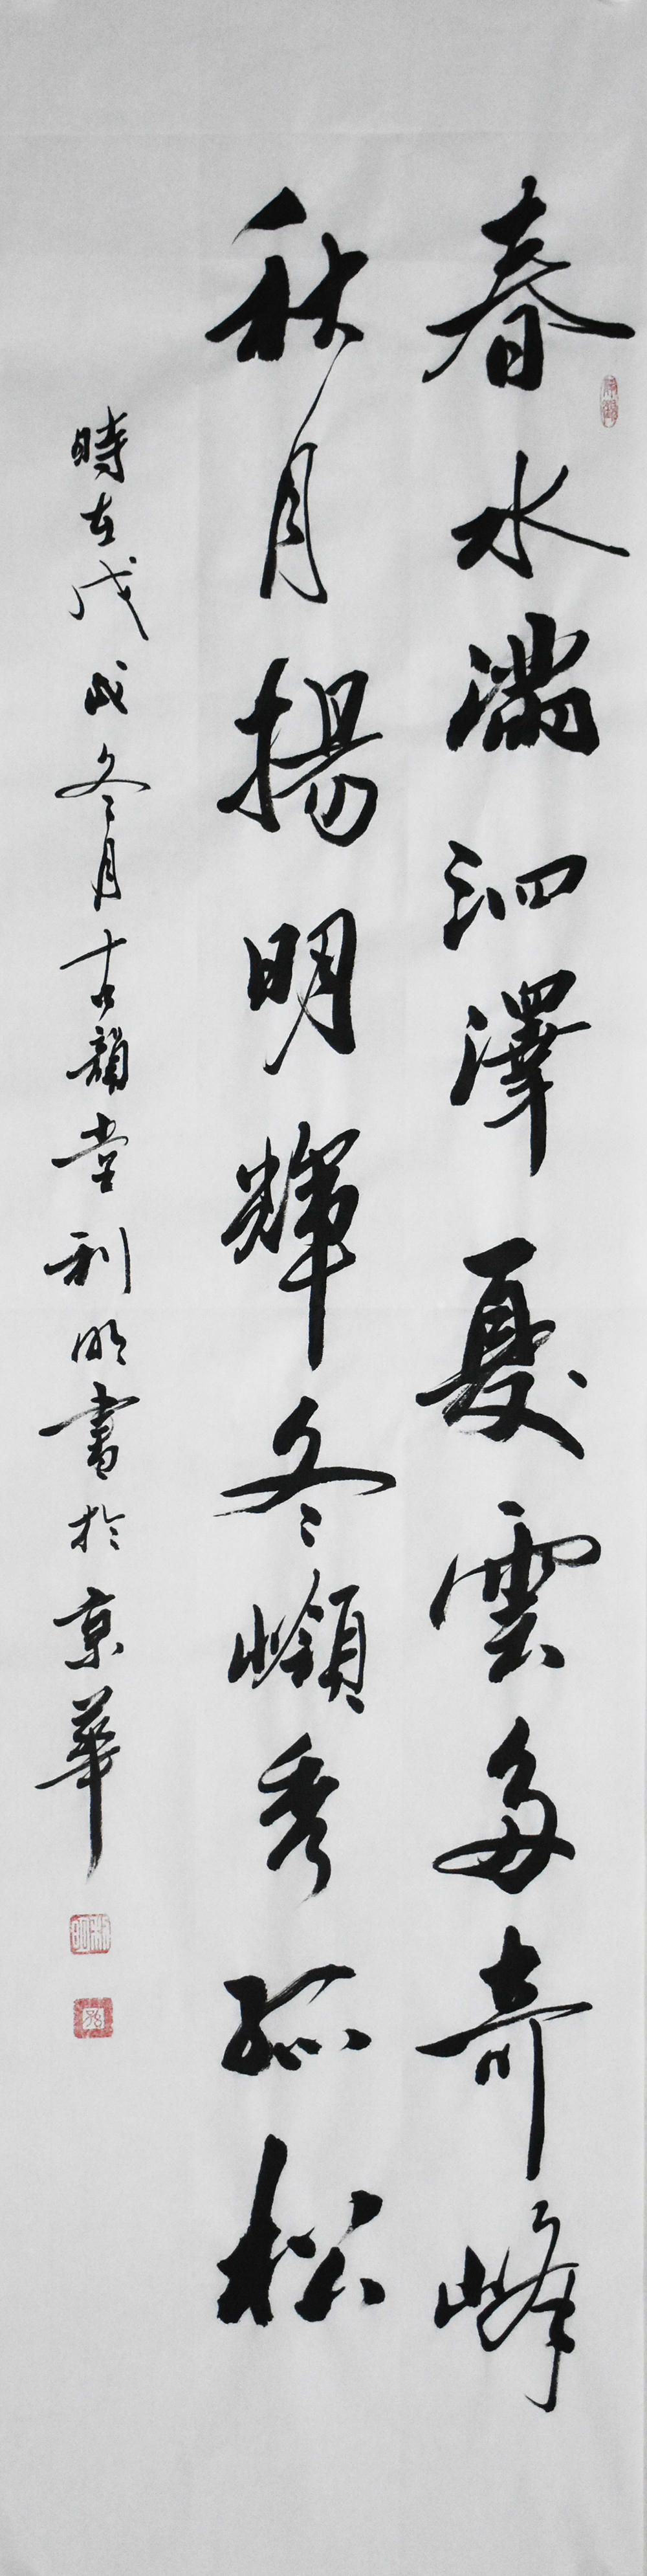 春水滿泗澤夏雲多奇峰
秋月揚明輝冬嶺秀孤松
時在戊戌冬月古韻堂利明書於京華
利明